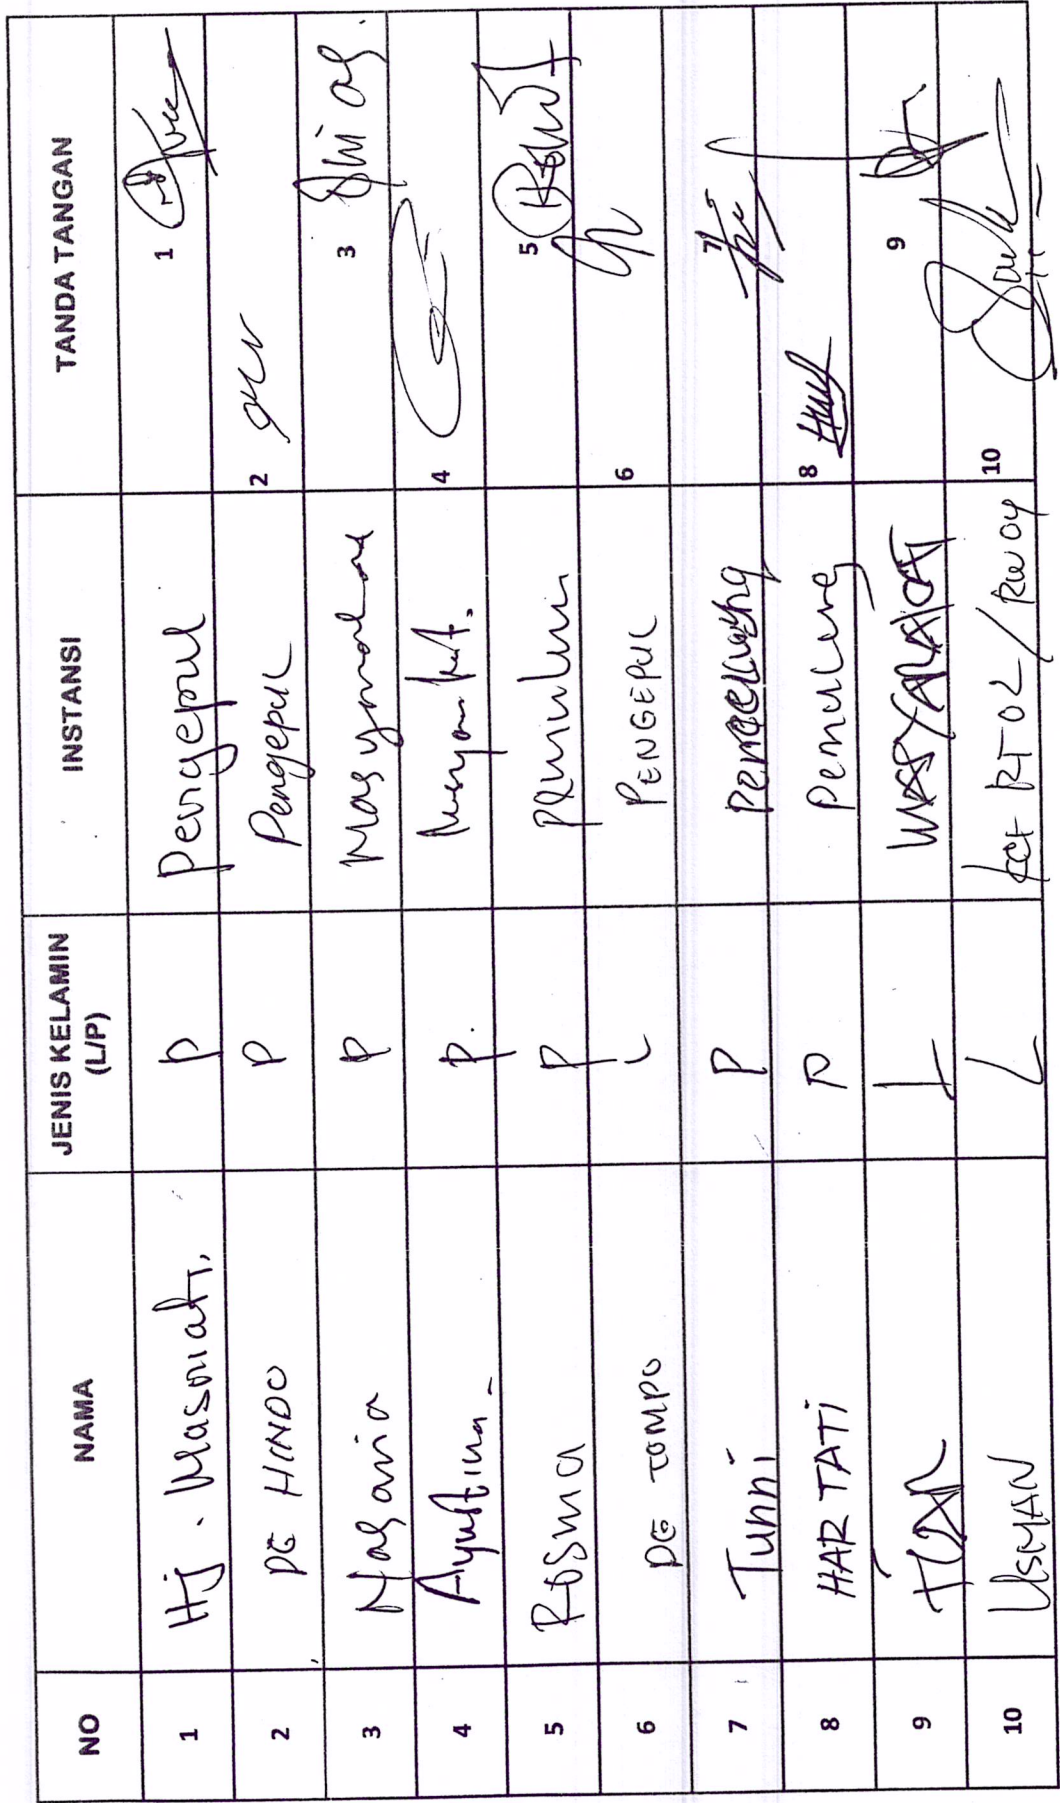 NO NAMA JENIS KELAMIN (L/P) INSTANSI TANDA TANGAN
1 Hj. Masniati, P Pengepul 1
2 DG HINDO P Pengepul 2
3 Masania P Masyarakat 3
4 Agustina P. 4
5 Rosma P Pemulung 5
6 DG TOMPO L PENGEPUL 6
7 Tunni P Pemulung 7
8 HARTATI P Pemulung 8
9 L MASYARAKAT 9
10 USMAN L RT 02/RW 04 10